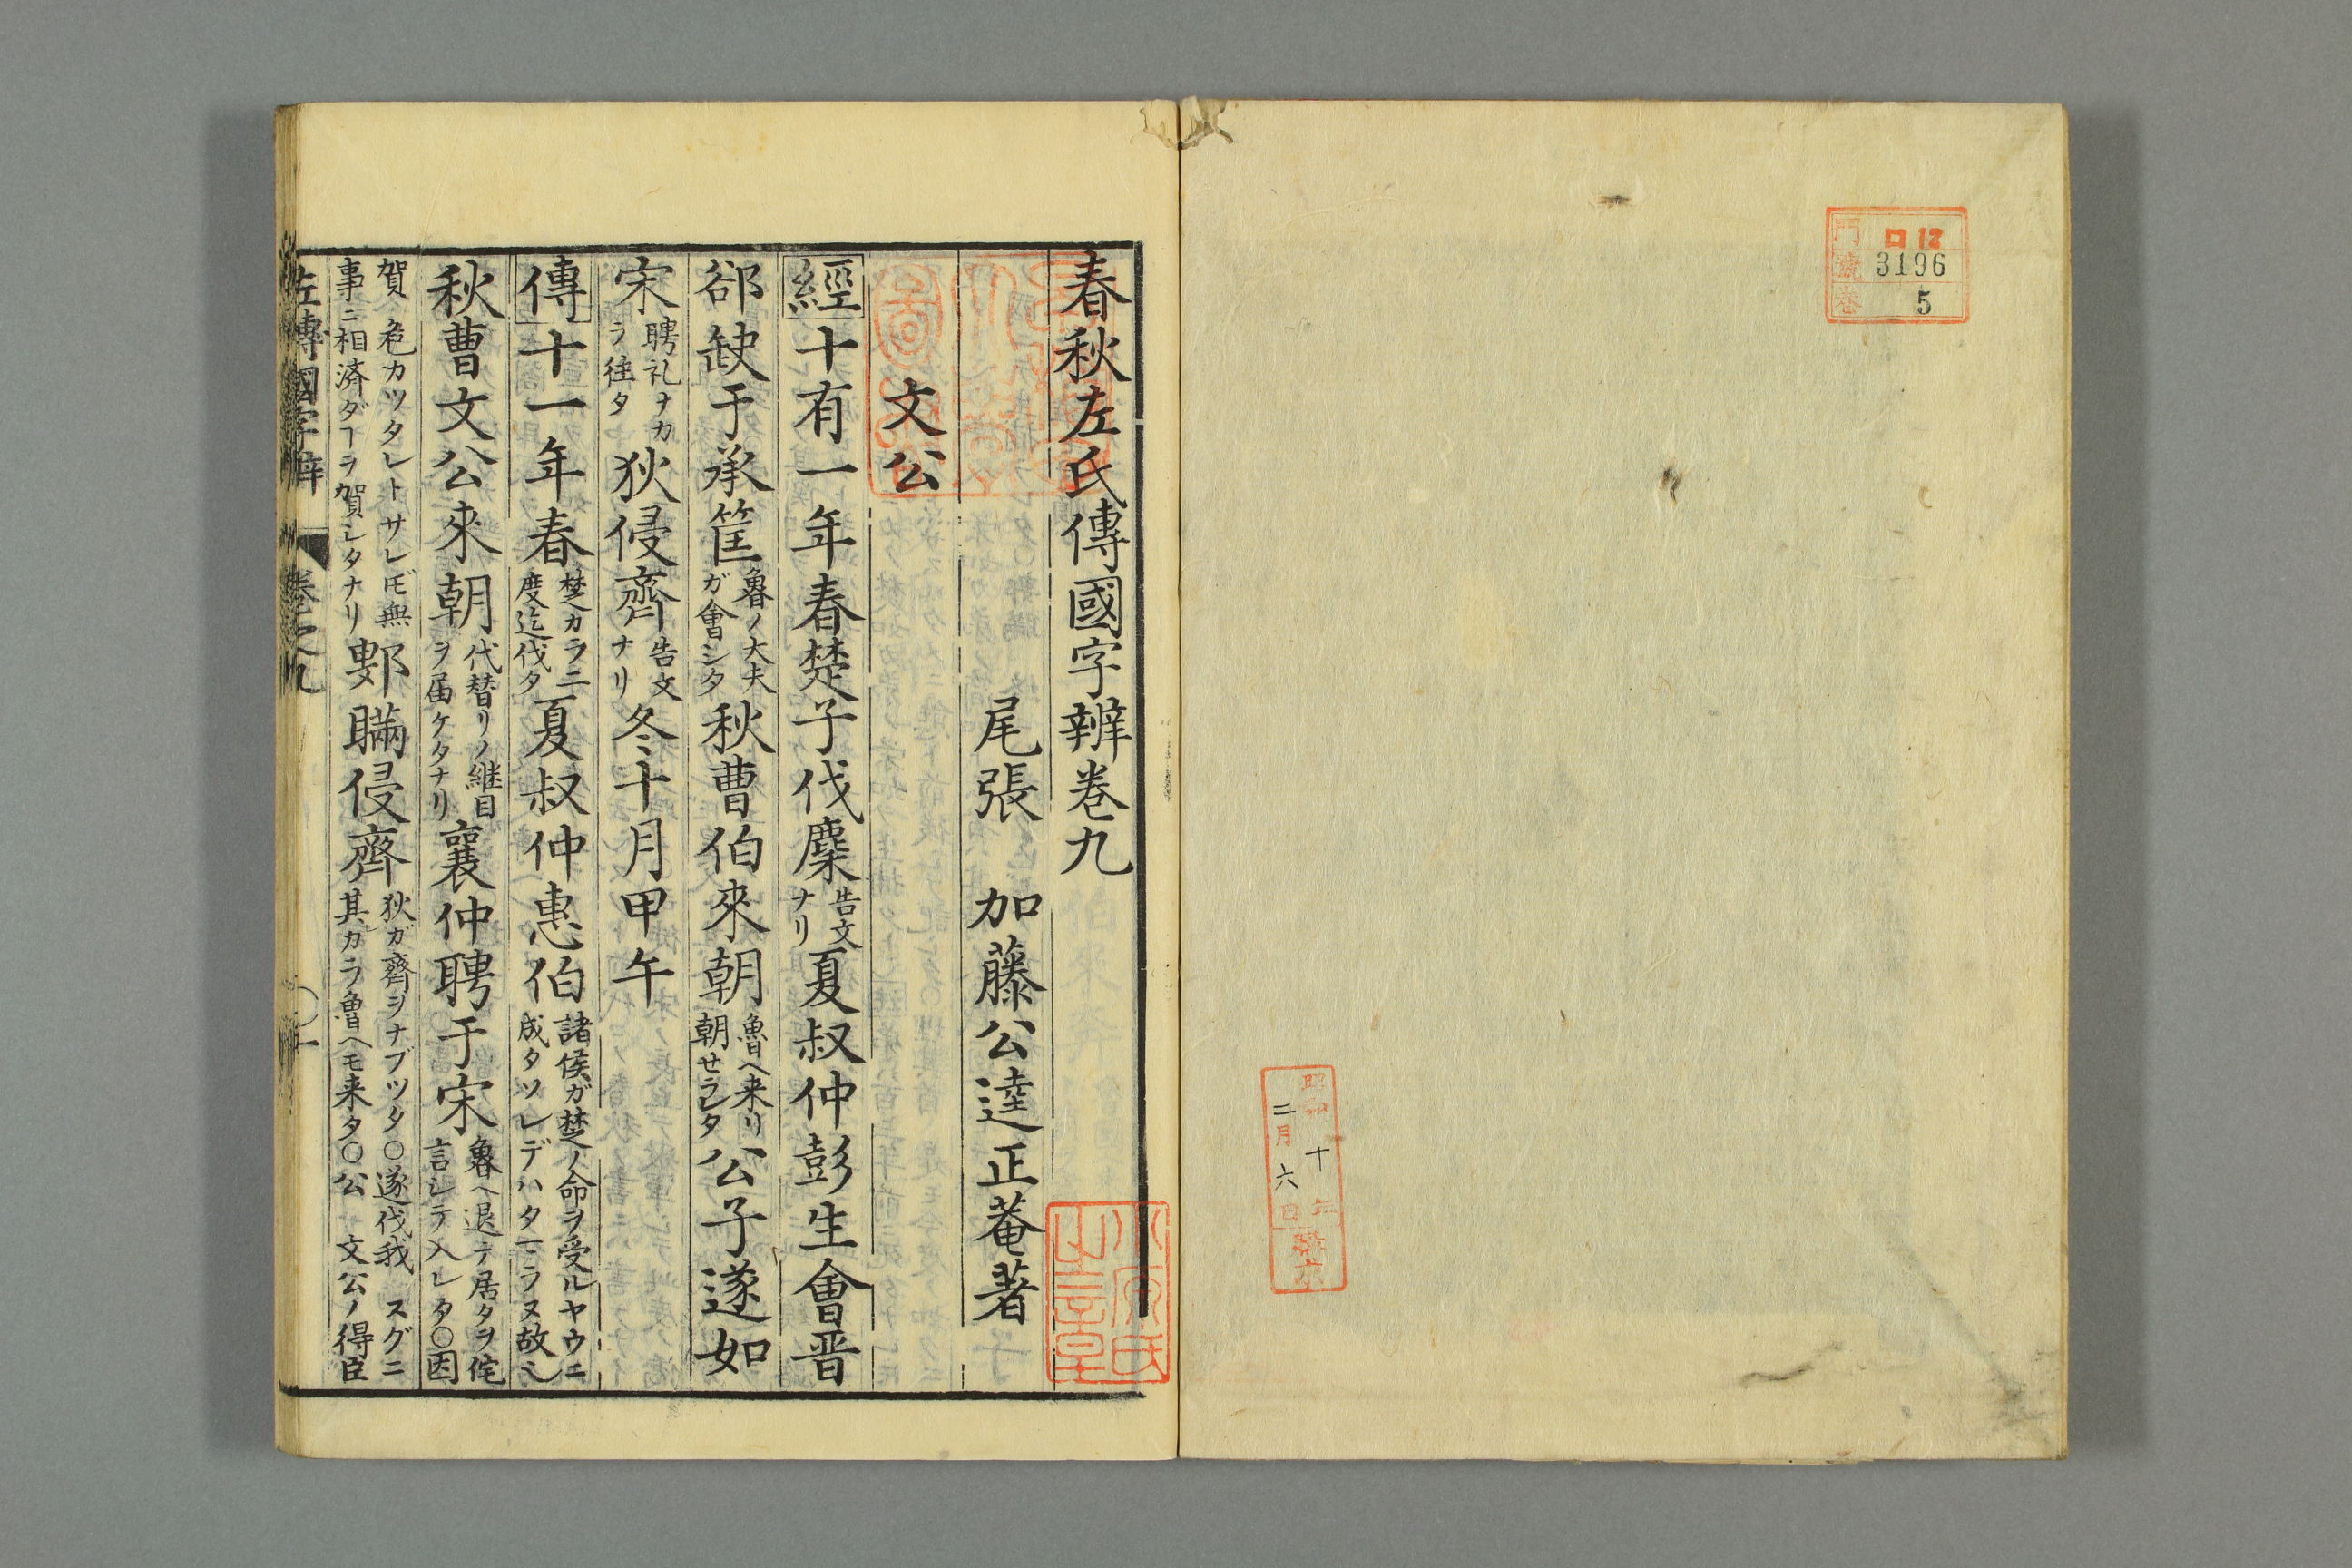 門 ロ12
號 3196
卷 5
昭和十年
二月六日
春秋左氏傳國字辨卷九
尾張 加藤公逵正菴著
文公
經十有一年春楚子伐麇告文ナリ夏叔仲彭生會晋
郤缺于承筐魯ノ大夫ガ會シタ秋曹伯來朝魯ヘ来リ朝セラレタ公子遂如
宋聘礼ナカラ往タ狄侵齊告文ナリ冬十月甲午
傳十一年春楚カラ二度迄伐タ夏叔仲惠伯諸侯ガ楚ノ命ヲ受ルヤウニ成タソレデハターラヌ故ヘ
秋曹文公來朝代替リノ継目ヲ届ケタナリ襄仲聘于宋魯ヘ退テ居タヲ侘言シテ入レタ〇因
賀 危カツタレトサレ𪜈無事ニ相済ダヿヲ賀シタナリ鄋瞞侵齊狄ガ齊ヲナブツタ〇遂伐我 スグニ其カラ魯ヘモ来タ〇公 文公ノ得臣
左傳國字辨 卷之九 〇一